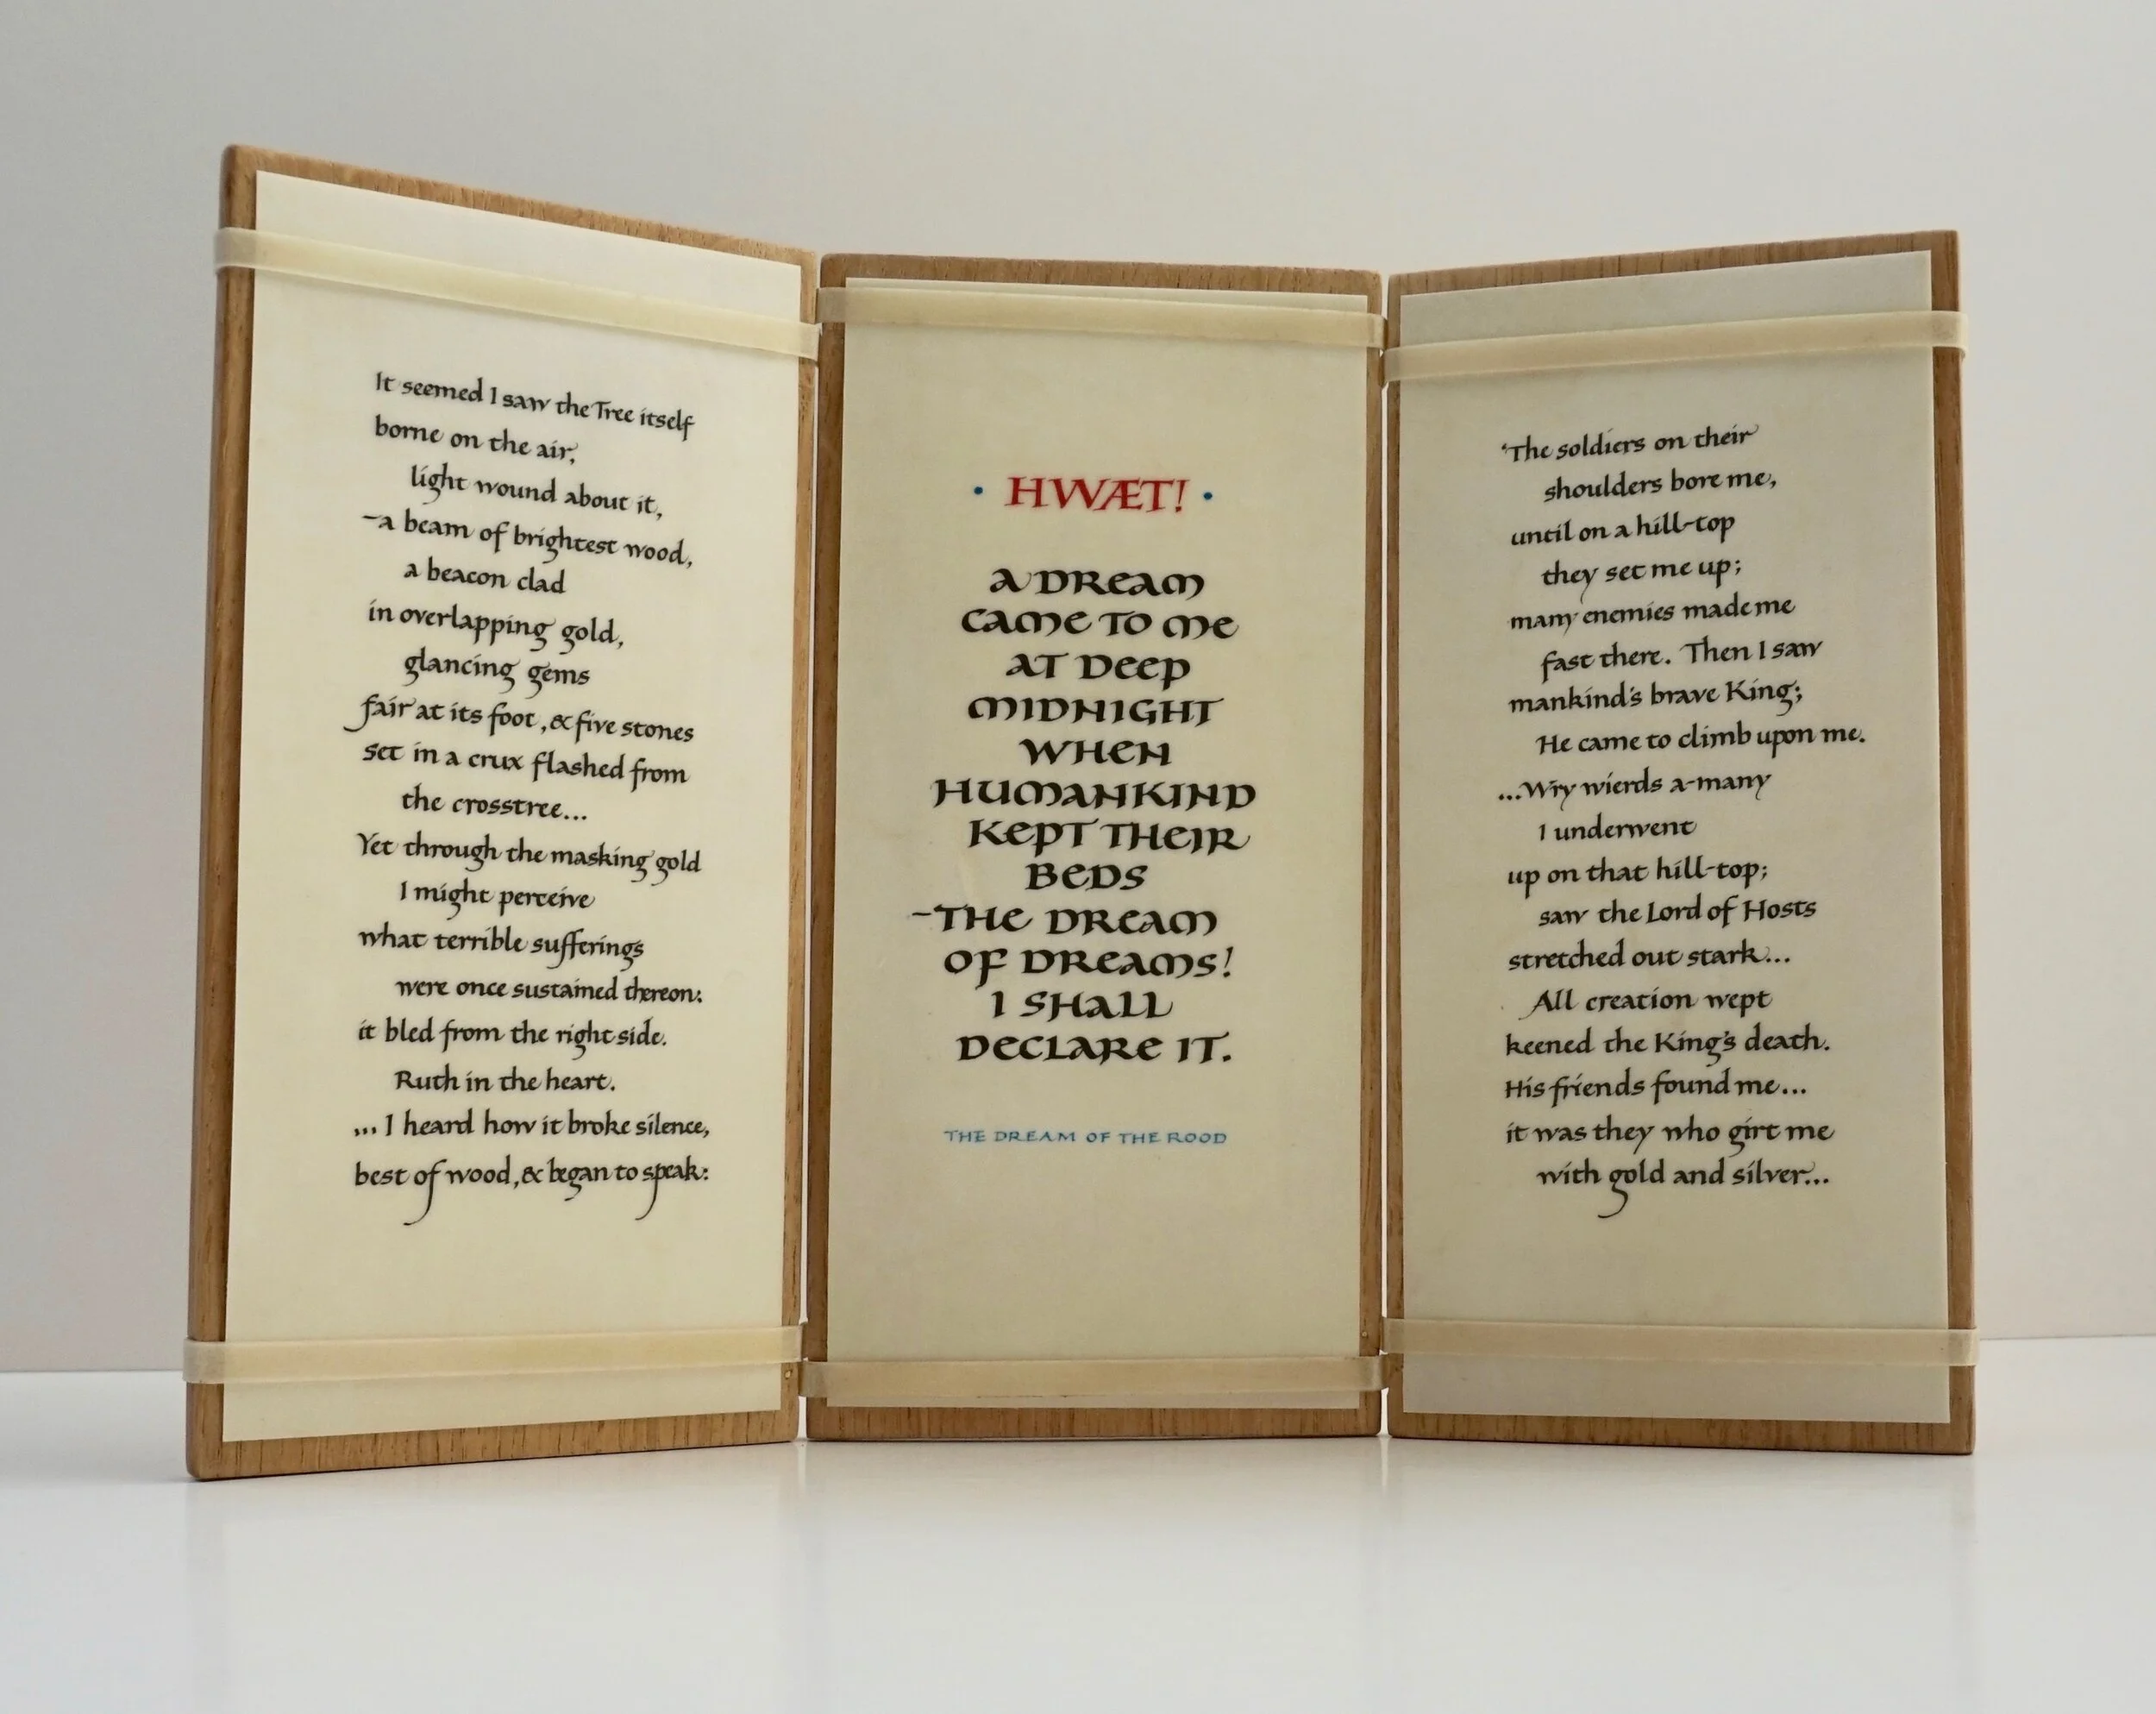 It seemed I saw the Tree itself
borne on the air,
light wound about it,
–a beam of brightest wood,
a beacon clad
in overlapping gold,
glancing gems
fair at its foot, & five stones
set in a crux flashed from
the crosstree...
Yet through the masking gold
I might perceive
what terrible sufferings
were once sustained thereon:
it bled from the right side.
Ruth in the heart.
...I heard how it broke silence,
best of wood, & began to speak:
· HWÆT! ·
A DREAM
CAME TO ME
AT DEEP
MIDNIGHT
WHEN
HUMANKIND
KEPT THEIR
BEDS
–THE DREAM
OF DREAMS!
I SHALL
DECLARE IT.
THE DREAM OF THE ROOD
‘The soldiers on their
shoulders bore me,
until on a hill-top
they set me up;
many enemies made me
fast there. Then I saw
mankind's brave King;
He came to climb upon me.
...Wry wierds a-many
I underwent
up on that hill-top;
saw the Lord of Hosts
stretched out stark...
All creation wept
keened the King's death.
His friends found me...
it was they who girt me
with gold and silver...